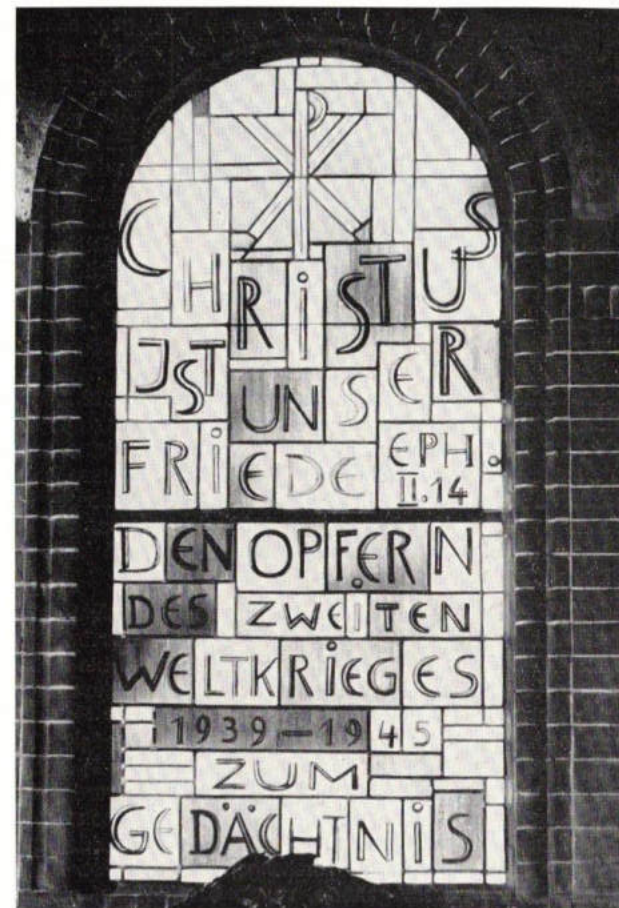 CHRISTUS
IST UNSER
FRIEDE EPH.
II.14
DEN OPFERN
DES ZWEITEN
WELTKRIEGES
1939–1945
ZUM
GEDÄCHTNIS